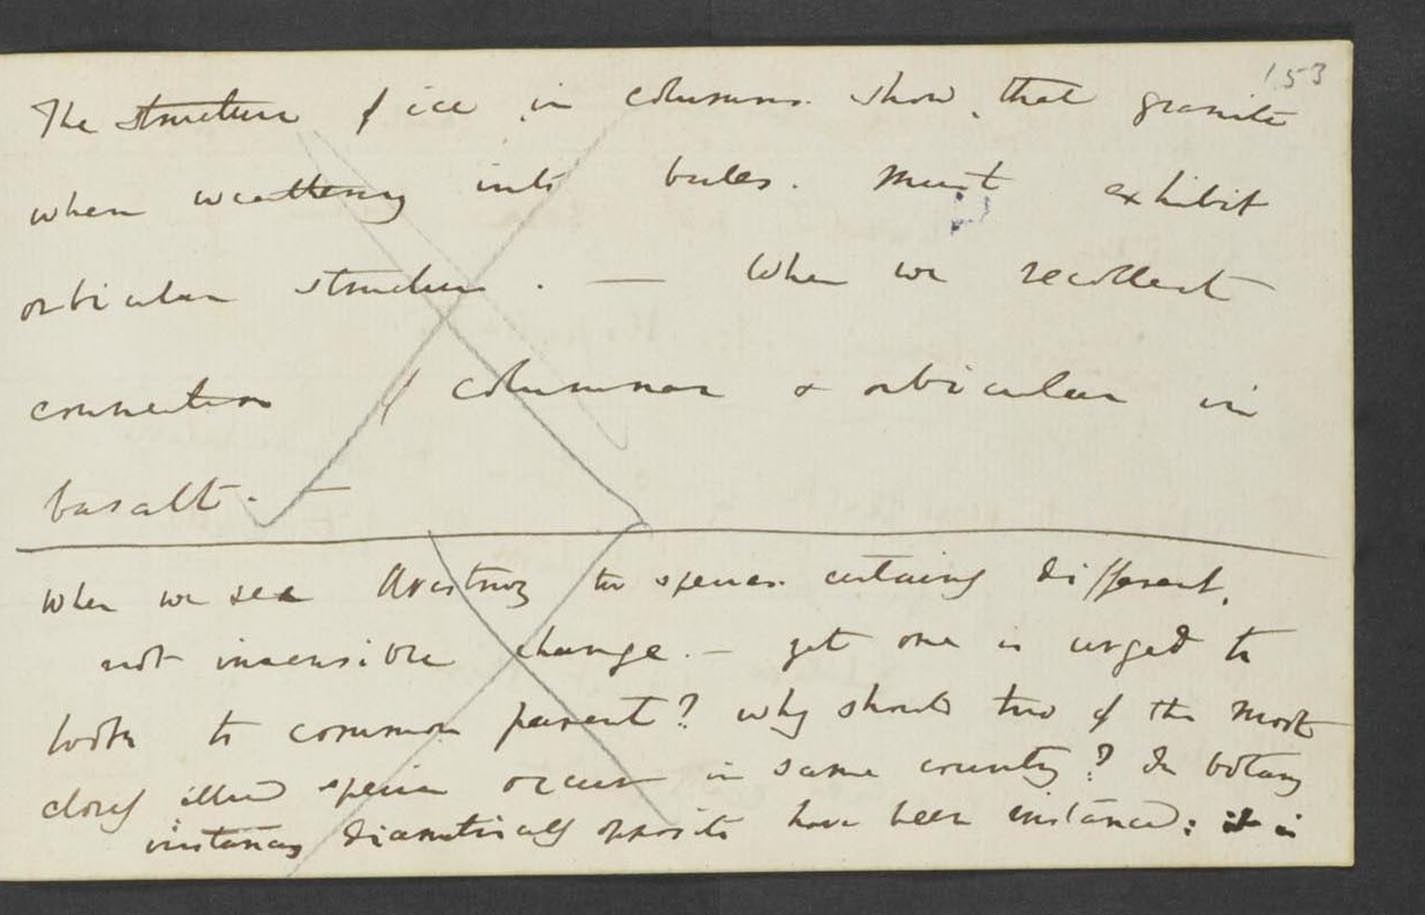 153
The structure of ice in columns. show that granite
when weathering into balls. must exhibit
orbicular structure. — When we recollect
connection of columnar & orbicular in
basalt. —
When we see Avestruz two species. certainly different,
not insensible change. — yet one is urged to
look to common parent? why should two of the most
closely allied species occur in same country? In botany
instances diametrically opposite have been instanced: it is